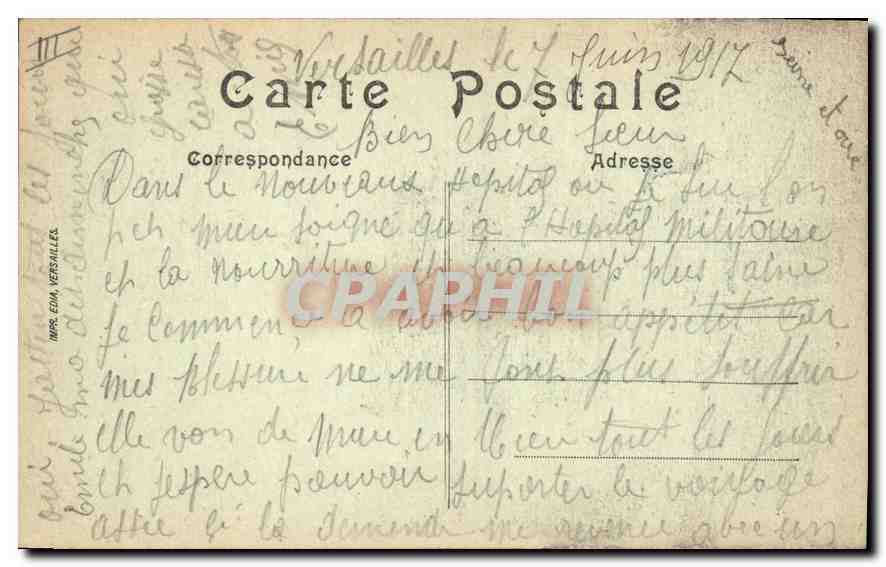 III
Versailles le 7 Juin 1917
Seine et oise
Carte Postale
Bien Chère Sœur
Correspondance
Adresse
Dans le nouveaux Hopital ou je sui l'on
est mieu soigné qu'a l'Hopital Militaire
et la nourriture est beaucoup plus saine
je commence a avoir bon appétit car
mes blessure ne me font plus souffrir
elle von de mieu en mieu tout les jours
et j'espère pouvoir suporter le voiyage
assie si la demende me revenu avec un
IMPR. EDIA, VERSAILLES.
CPAPHIL
oui. J'attend les
Emile
qui
grosse